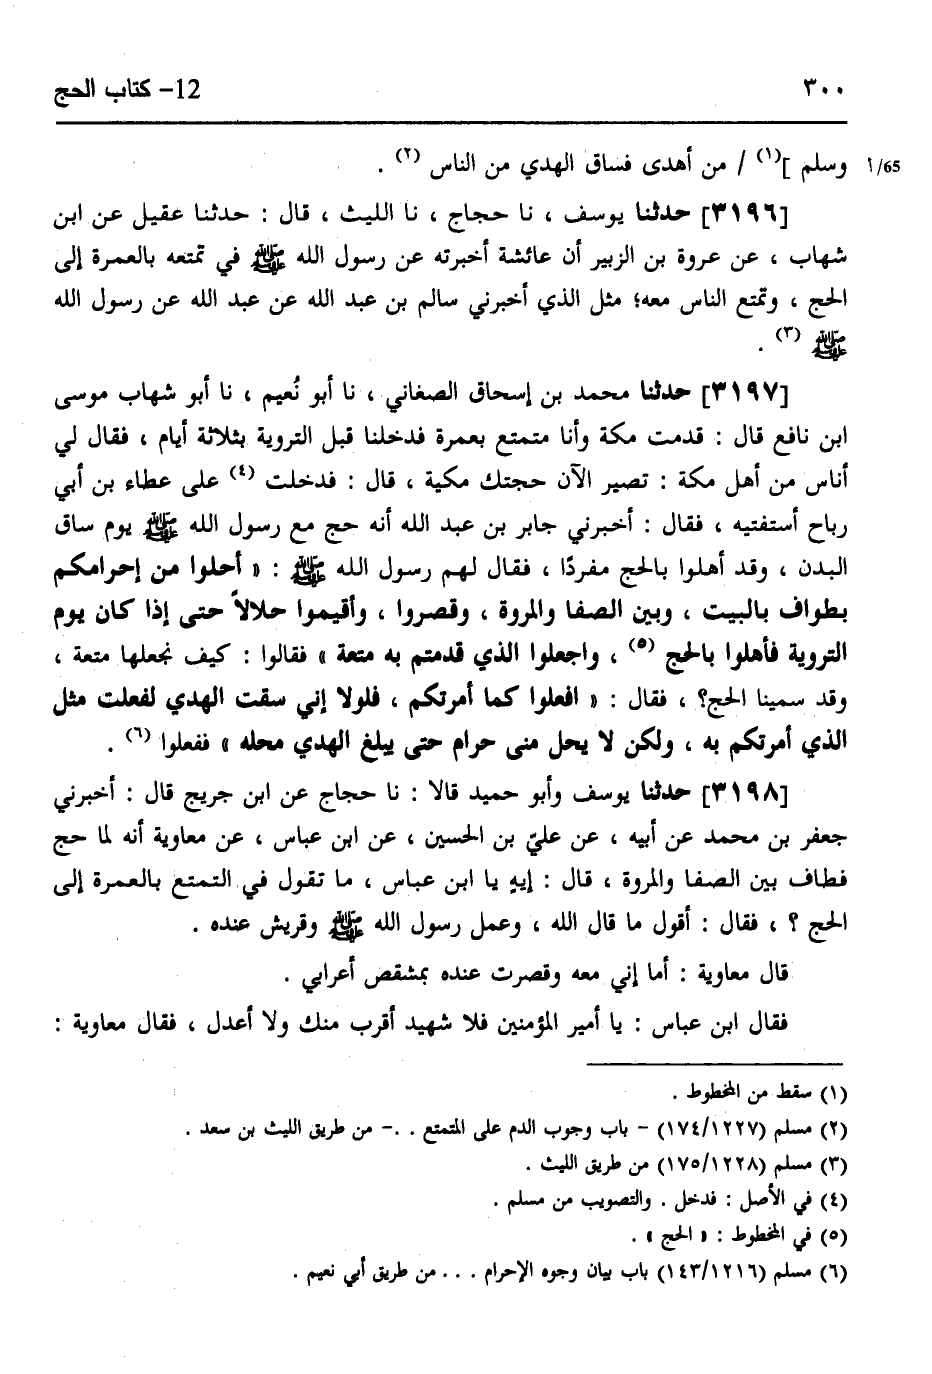 ٣٠٠
12- كتاب الحج
وسلم ](١) / من أهدى فساق الهدي من الناس (٢) .
65/أ
[٣١٩٦] حدثنا يوسف ، نا حجاج ، نا الليث ، قال : حدثنا عقيل عن ابن
شهاب ، عن عروة بن الزبير أن عائشة أخبرته عن رسول الله ﷺ في تمتعه بالعمرة إلى
الحج ، وتمتع الناس معه؛ مثل الذي أخبرني سالم بن عبد الله عن عبد الله عن رسول الله
ﷺ (٣) .
[٣١٩٧] حدثنا محمد بن إسحاق الصغاني ، نا أبو نُعيم ، نا أبو شهاب موسى
ابن نافع قال : قدمت مكة وأنا متمتع بعمرة فدخلنا قبل التروية بثلاثة أيام ، فقال لي
أناس من أهل مكة : تصير الآن حجتك مكية ، قال : فدخلت (٤) على عطاء بن أبي
رباح أستفتيه ، فقال : أخبرني جابر بن عبد الله أنه حج مع رسول الله ﷺ يوم ساق
البدن ، وقد أهلوا بالحج مفردًا ، فقال لهم رسول الله ﷺ : « أحلوا من إحرامكم
بطواف بالبيت ، وبين الصفا والمروة ، وقصروا ، وأقيموا حلالاً حتى إذا كان يوم
التروية فأهلوا بالحج (٥) ، واجعلوا الذي قدمتم به متعة » فقالوا : كيف نجعلها متعة ،
وقد سمينا الحج؟ ، فقال : « افعلوا كما أمرتكم ، فلولا إني سقت الهدي لفعلت مثل
الذي أمرتكم به ، ولكن لا يحل منى حرام حتى يبلغ الهدي محله » ففعلوا (٦) .
[٣١٩٨] حدثنا يوسف وأبو حميد قالا : نا حجاج عن ابن جريج قال : أخبرني
جعفر بن محمد عن أبيه ، عن عليّ بن الحسين ، عن ابن عباس ، عن معاوية أنه لما حج
فطاف بين الصفا والمروة ، قال : إيهٍ يا ابن عباس ، ما تقول في التمتع بالعمرة إلى
الحج ؟ ، فقال : أقول ما قال الله ، وعمل رسول الله ﷺ وقريش عنده .
قال معاوية : أما إني معه وقصرت عنده بمشقص أعرابي .
فقال ابن عباس : يا أمير المؤمنين فلا شهيد أقرب منك ولا أعدل ، فقال معاوية :
(١) سقط من المخطوط .
(٢) مسلم (١٧٤/١٢٢٧) - باب وجوب الدم على المتمتع . .- من طريق الليث بن سعد .
(٣) مسلم (١٧٥/١٢٢٨) من طريق الليث .
(٤) في الأصل : فدخل . والتصويب من مسلم .
(٥) في المخطوط : « الحج » .
(٦) مسلم (١٤٣/١٢١٦) باب بيان وجوه الإحرام . . . من طريق أبي نعيم .